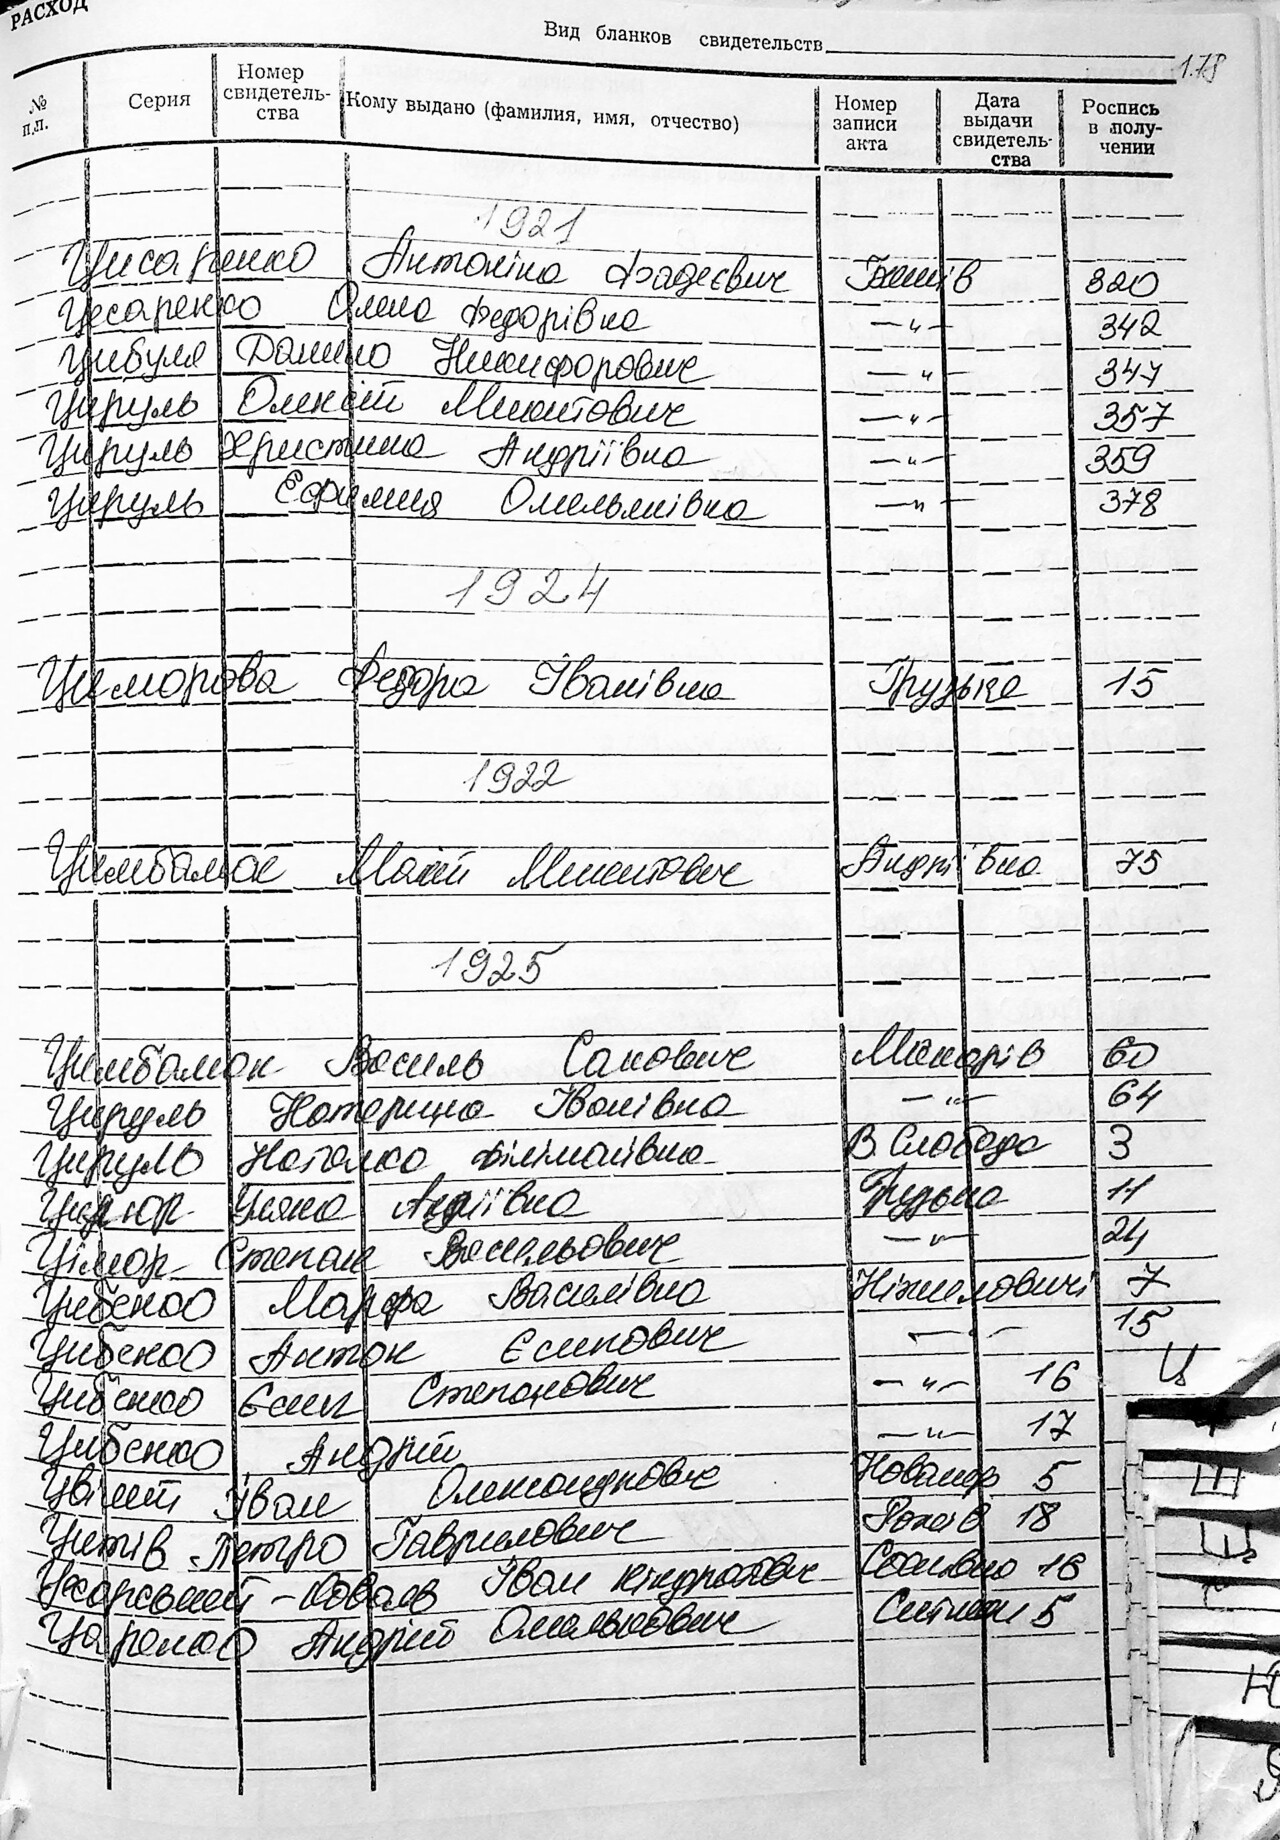 РАСХОД
Вид бланков свидетельств
178
№ п.п. Серия Номер свидетель-ства Кому выдано (фамилия, имя, отчество) Номер записи акта Дата выдачи свидетель-ства Роспись в полу-чении
1921
Цисаренко Антоніна Фадеєвич 320
Цесаренко Олена Федорівна —"— 342
Цибуля Данило Никифорович —"— 347
Цируль Олексій Микитович —"— 357
Цируль Христина Андріївна —"— 359
Цируль Ефимия Омельянівна —"— 378
1924
Циморова Федора Іванівна Грузька 15
1922
Цимбалюк Макій Микитович Андріївка 75
1925
Цимбалюк Василь Савович Макарів 60
Цируль Катерина Іванівна —"— 64
Цируль Наталка Філімонівна В. Слобода 3
Уляна Андріївна Грузька 11
Цімор Степан Васильович —"— 24
Цибенко Марфа Василівна Ніжиловичі 7
Цибенко Антон Єсипович —"— 15
Цибенко Єсип Степанович —"— 16
Ц
Цибенко Андрій —"— 17
Іван Олександрович 5
Петро Гаврилович 18
Коваль Іван Кіндратович 16
Царенко Андрій Омелькович Ситняки 5